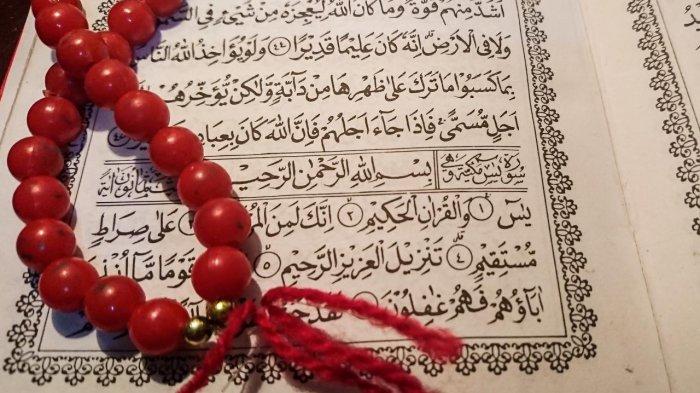 اَشَدَّ مِنْهُمْ قُوَّةً وَمَا كَانَ اللّٰهُ لِيُعْجِزَهٗ مِنْ شَيْءٍ فِي السَّمٰوٰتِ
وَلَا فِي الْاَرْضِ اِنَّهٗ كَانَ عَلِيْمًا قَدِيْرًا ﴿٤٤﴾ وَلَوْ يُؤَاخِذُ اللّٰهُ النَّاسَ
بِمَا كَسَبُوْا مَا تَرَكَ عَلٰى ظَهْرِهَا مِنْ دَآبَّةٍ وَّلٰكِنْ يُّؤَخِّرُهُمْ
اَجَلٍ مُّسَمًّى فَاِذَا جَآءَ اَجَلُهُمْ فَاِنَّ اللّٰهَ كَانَ بِعِبَا
سُوْرَةُ يٰسٓ مَكِّيَّةٌ بِسْمِ اللّٰهِ الرَّحْمٰنِ الرَّحِيْمِ
يٰسٓ ﴿١﴾ وَالْقُرْاٰنِ الْحَكِيْمِ ﴿٢﴾ اِنَّكَ لَمِنَ الْمُرْ عَلٰى صِرَاطٍ
مُّسْتَقِيْمٍ ﴿٤﴾ تَنْزِيْلَ الْعَزِيْزِ الرَّحِيْمِ ﴿٥﴾ قَوْمًا مَّآ اُنْذِرَ
اٰبَآؤُهُمْ فَهُمْ غٰفِلُوْنَ لَقَدْ حَقَّ